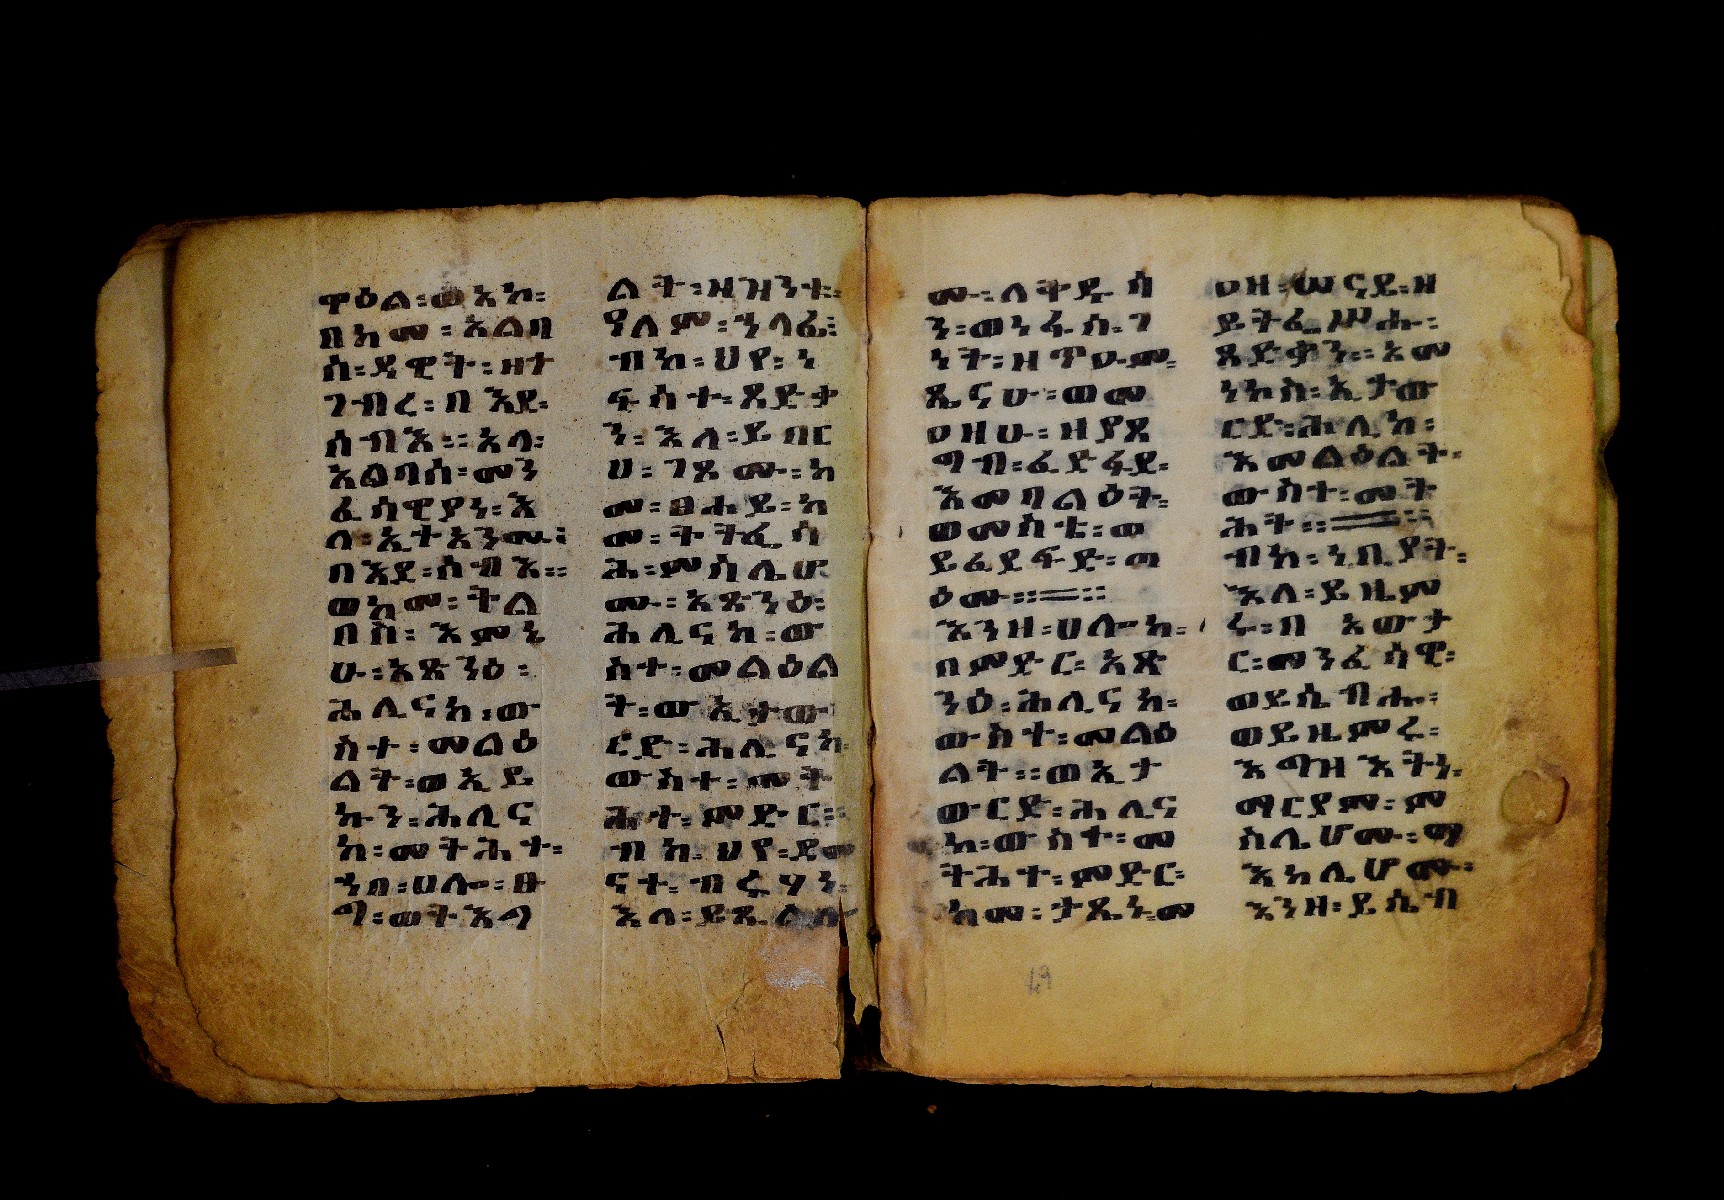 ዋዕል፡ወአኮ፡
በከመ፡አልባ
ስ፡ዳዊት፡ዘተ
ገብረ፡በእደ፡
ሰብእ፡፡አላ፡
አልባሰ፡መን
ፈሳዊያን፡እ
ለ፡ኢተአንሙ፡
በእደ፡ሰብእ፡፡
ወከመ፡ትል
በስ፡እምኔ
ሁ፡አጽንዕ፡
ሕሊናከ፡ው
ስተ፡መልዕ
ልት፡ወኢይ
ኩን፡ሕሊና
ከ፡መትሕተ፡
ኀበ፡ሀሎ፡ፀ
ማ፡ወትእግ
ልት፡ዘዝንቱ፡
ዓለም፡ኀላፊ፡
ብከ፡ህየ፡ን
ፍስተ፡ጻድቃ
ን፡እለ፡ይበር
ሀ፡ገጾሙ፡ከ
መ፡ፀሐይ፡ከ
መ፡ትትፌሳ
ሕ፡ምስሌሆ
ሙ፡አጽንዕ፡
ሕሊናከ፡ው
ስተ፡መልዕል
ት፡ወኢታው
ርድ፡ሕሊናከ፡
ውስተ፡መት
ሕተ፡ምድር፡፡
ብከ፡ህየ፡ደመ
ናተ፡ብሩሃን፡
እለ፡ይጼልሉ
ሙ፡ለትዱሳ
ን፡ወነፋስ፡ገ
ነት፡ዘጥዑም፡
ጼናሁ፡ወመ
ዐዛሁ፡ዘያጸ
ግብ፡ፈድፋደ፡
እመባልዕት፡
ወመስቴ፡ወ
ይፈደፍድ፡ጣ
ዕሙ፡፡
እንዘ፡ሀሎከ፡
በምድር፡አጽ
ንዕ፡ሕሊናከ፡
ውስተ፡መልዕ
ልት፡፡ወኢታ
ውርድ፡ሕሊና
ከ፡ውስተ፡መ
ትሕተ፡ምድር፡
ከመ፡ታጼኑ፡መ
ዐዘ፡ሠናይ፡ዘ
ይትፌሥሑ፡
ጻድቃን፡፡አመ
ነከስ፡ኢታው
ርድ፡ሕሊከ፡
እመልዕልት፡
ውስተ፡መት
ሕት፡፡
ብከ፡ነቢያት፡
እለ፡ይዜም
ሩ፡በ አውታ
ር፡መንፈሳዊ፡
ወይሴብሑ፡
ወይዜምሩ፡
እግዝእትነ፡
ማርያም፡ም
ስሌሆሙ፡ማ
እከሌሆሙ፡
እንዘ፡ይሴብ